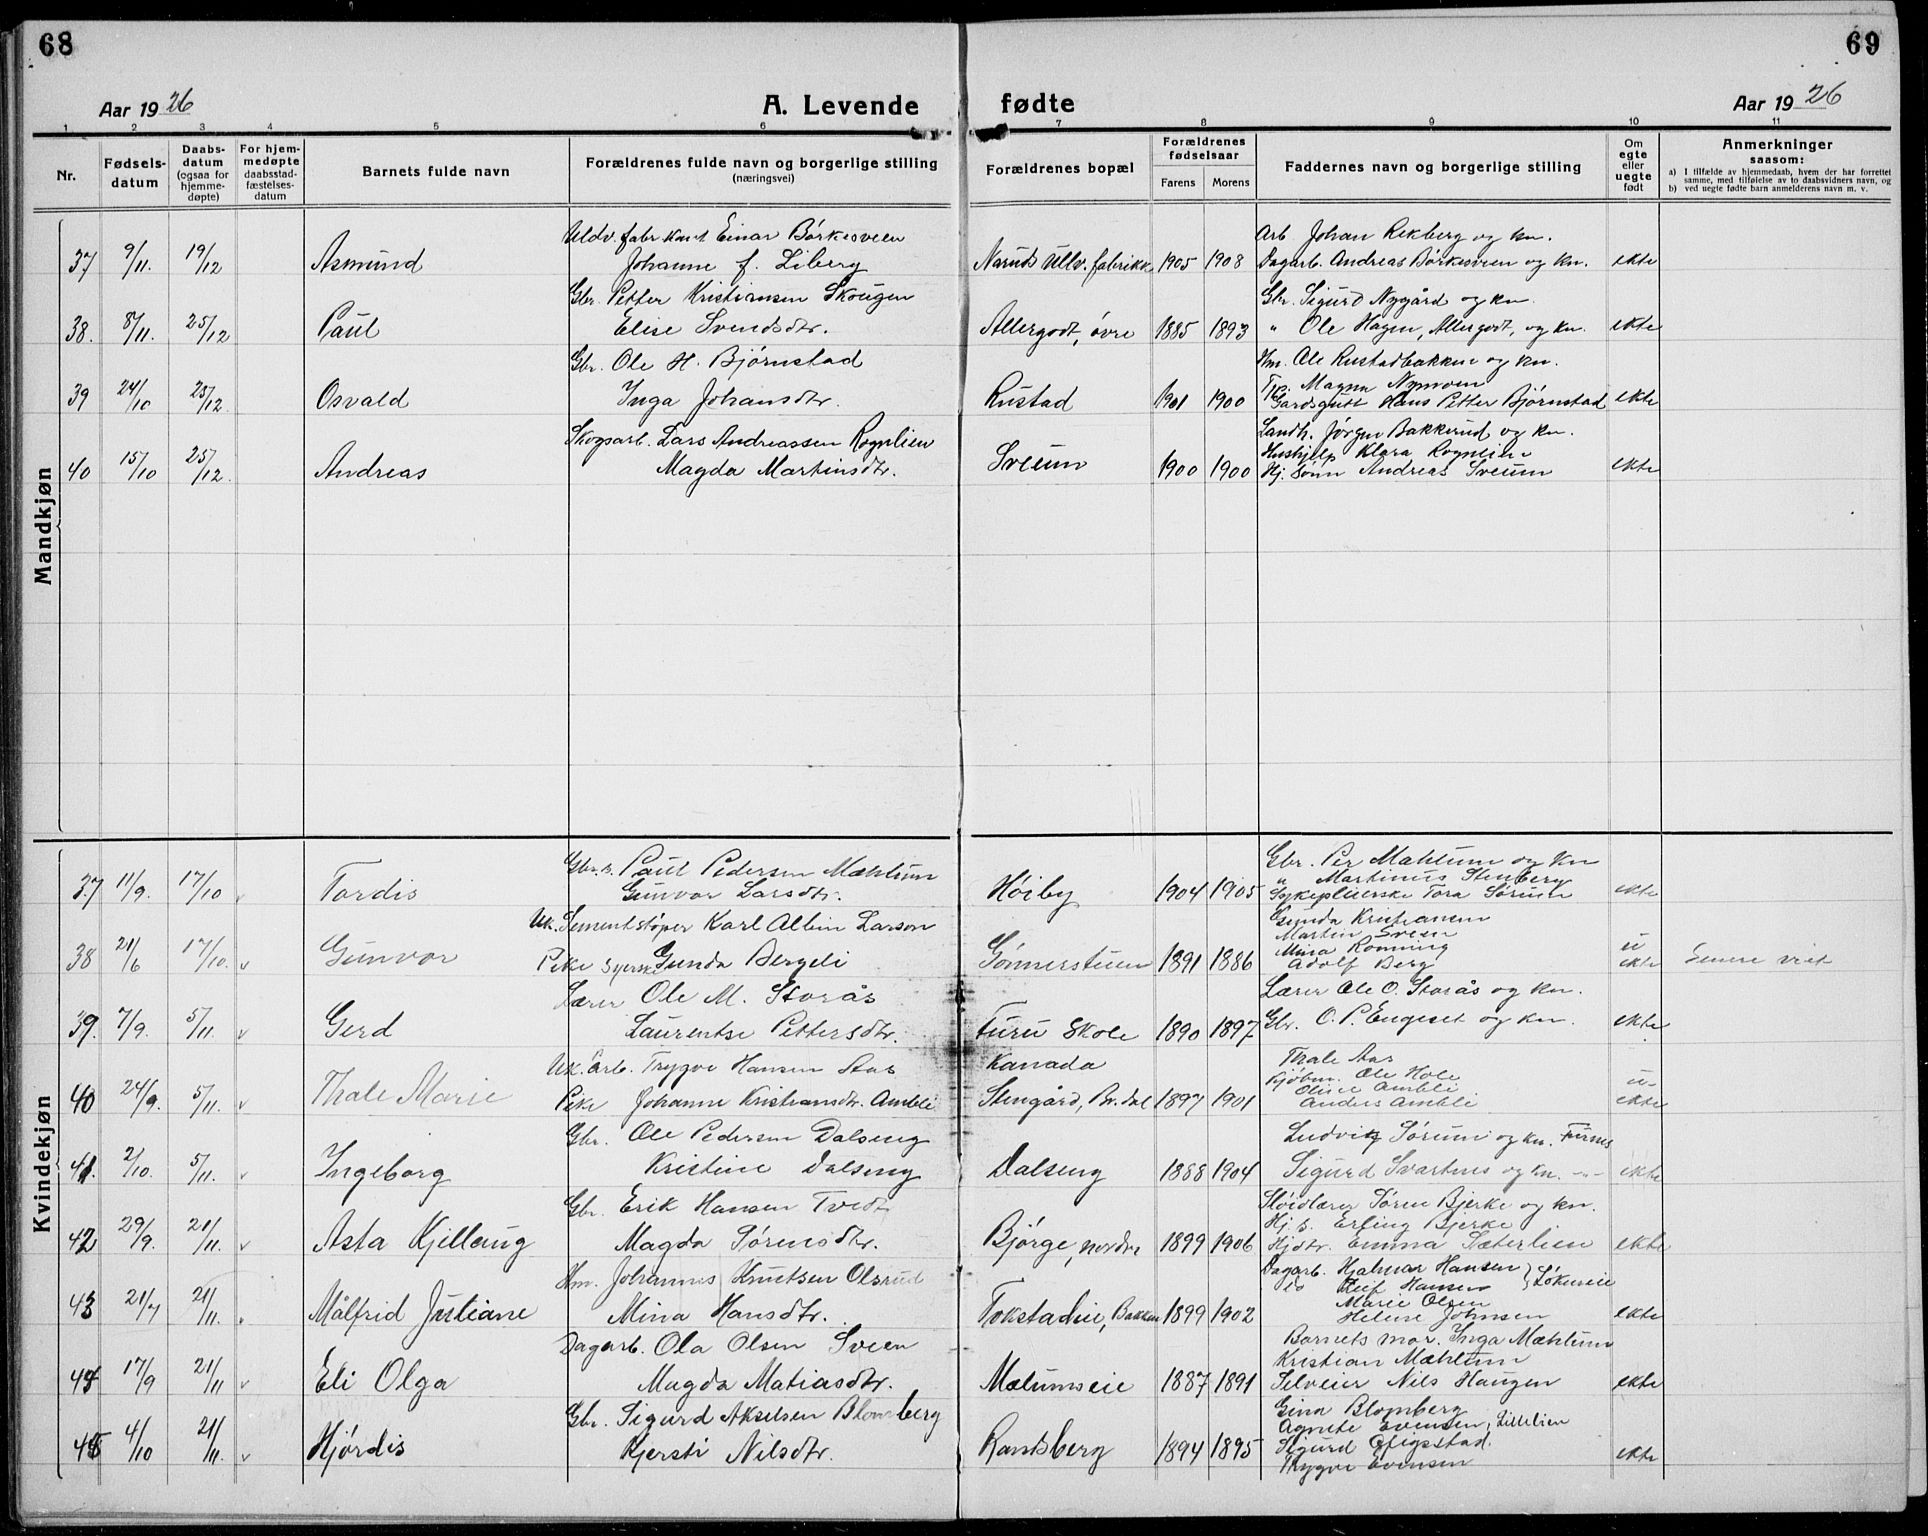 68
69
Aar 1926
A. Levende fødte
Aar 1926
1 2 3 4 5 6 7 8 9 10 11
Nr.
Fødsels-
datum
Daabs-
datum
(ogsaa for
hjemme-
døpte)
For hjem-
medøpte
daabsstad-
fæstelses-
datum
Barnets fulde navn
Forældrenes fulde navn og borgerlige stilling
(næringsvei)
Forældrenes bopæl
Forældrenes
fødselsaar
Farens Morens
Faddernes navn og borgerlige stilling
Om
egte
eller
uegte
født
Anmerkninger
saasom:
a) I tilfælde av hjemmedaab, hvem der har forrettet
samme, med tilføielse av to daabsvidners navn, og
b) ved uegte fødte barn anmelderens navn m. v.
Mandkjøn
Uldv. fabr. Einar Børkesveen Arb. Johan Rekberg og kn.
37 9/11. 19/12 Asmund Johanne f. Liberg Naruds Ullv. fabrikk 1905 1908 Dagarb. Andreas Børkesveen og kn. ekte
Gbr. Petter Kristiansen Skougen Gbr. Sigurd Nygård og kn.
38. 8/11. 25/12 Paul Elise Svendsdtr. Allergodt, øvre 1885 1893 " Ole Hagen, Allergodt, og kn. ekte
Gbr. Ole H. Bjørnstad Hm. Ole Rustadbakken og kn.
Magna Nymoen
39 24/10 25/12 Osvald Inga Johansdtr. Rustad 1901 1900 Gardsgutt Hans Petter Bjørnstad ekte
Skogsarb. Lars Andreassen Rognlien Landh. Jørgen Bakkerud og kn.
Hushjelp Klara Rognlien
40 15/10 25/12. Andreas Magda Martinsdtr. Sveum 1900 1900 Hj. sønn Andreas Sveum ekte
Kvindekjøn
Gbr. s. Paul Pedersen Mæhlum Gbr. Per Mæhlum og kn
" Martinus Stenberg
37 11/9. 17/10 v Tordis Gunvor Larsdtr. Høiby 1904 1905 Sykepleierske Tora Sørum ekte
Uk. Sementstøper Karl Albin Larson Gunda Kristiansen
Martin Sveen
Mina Rønning u
38 21/6 17/10. v Gunvor Pike syersk Gunda Bergli Gønnerstuen 1891 1886 Adolf Berg ekte Senere viet
Lærer Ole M. Storås Lærer Ole O. Storås og kn.
39. 7/9. 5/11. v Gerd Laurentse Pettersdtr. Furu Skole 1890 1897 Gbr. O. P. Engeset og kn. ekte
Uk. arb. Trygve Hansen Aas Kanada Thale Aas
Kjøbm. Ole Hole
Olise Ambli u-
40 24/9. 5/11. v Thale Marie Pike Johanne Kristiansdtr. Ambli Stengård, Br.dal 1897 1901 Anders Ambli ekte
Gbr. Ole Pedersen Dalseng Ludvik Sørum og kn. Furnes
41. 2/10. 5/11. v Ingeborg Kristine Dalseng Dalseng 1888 1904 Sigurd Svartnes og kn. -"- ekte
Gbr. Erik Hansen Tvedt Sløidlærer Søren Bjerke og kn.
Hj. s. Erling Bjerke
42 29/9. 21/11. v Asta Kjellaug Magda Sørensdtr. Bjørge, nordre 1899 1906 Hjdtr. Emma Sæterlien ekte
Hm. Johannes Knutsen Olsrud Dagarb. Hjalmar Hansen
do Leif Hansen } Løkeneie
Marie Olsen
43 21/7 21/11. Målfrid Justiane Mina Hansdtr. Tokstadeie, Bakken 1899 1902 Helene Johnsen ekte
Dagarb. Ola Olsen Sveen Barnets mor. Inga Mæhlum
Kristian Mæhlum
44 17/9 21/11 v Eli Olga Magda Matiasdtr. Mælumseie 1887 1891 Selveier Nils Haugen ekte
Gbr. Sigurd Akselsen Blomberg Gina Blomberg
Agnete Evensen, Lillelien
45 4/10 21/11. v Hjørdis Kjersti Nilsdtr. Ransberg 1894 1895 Sigurd ekte
Trygve Evensen